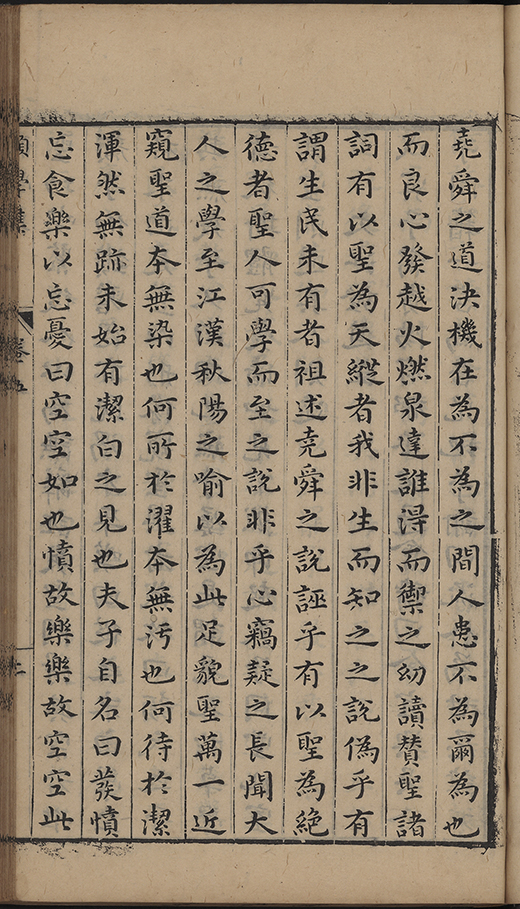 堯舜之道決機在為不為之間人患不為爾為也
而良心發越火燃泉達誰淂而禦之幼讀賛聖諸
詞有以聖為天縱者我非生而知之之說偽乎有
謂生民未有者祖述堯舜之說誣乎有以聖為絶
德者聖人可學而至之說非乎心竊疑之長聞大
人之學至江漢秋陽之喻以為此足貌聖萬一近
窺聖道夲無染也何所於濯夲無汚也何待於潔
渾然無跡未始有潔白之見也夫子自名曰發憤
忘食樂以忘憂曰空空如也憤故樂樂故空空此
卷五